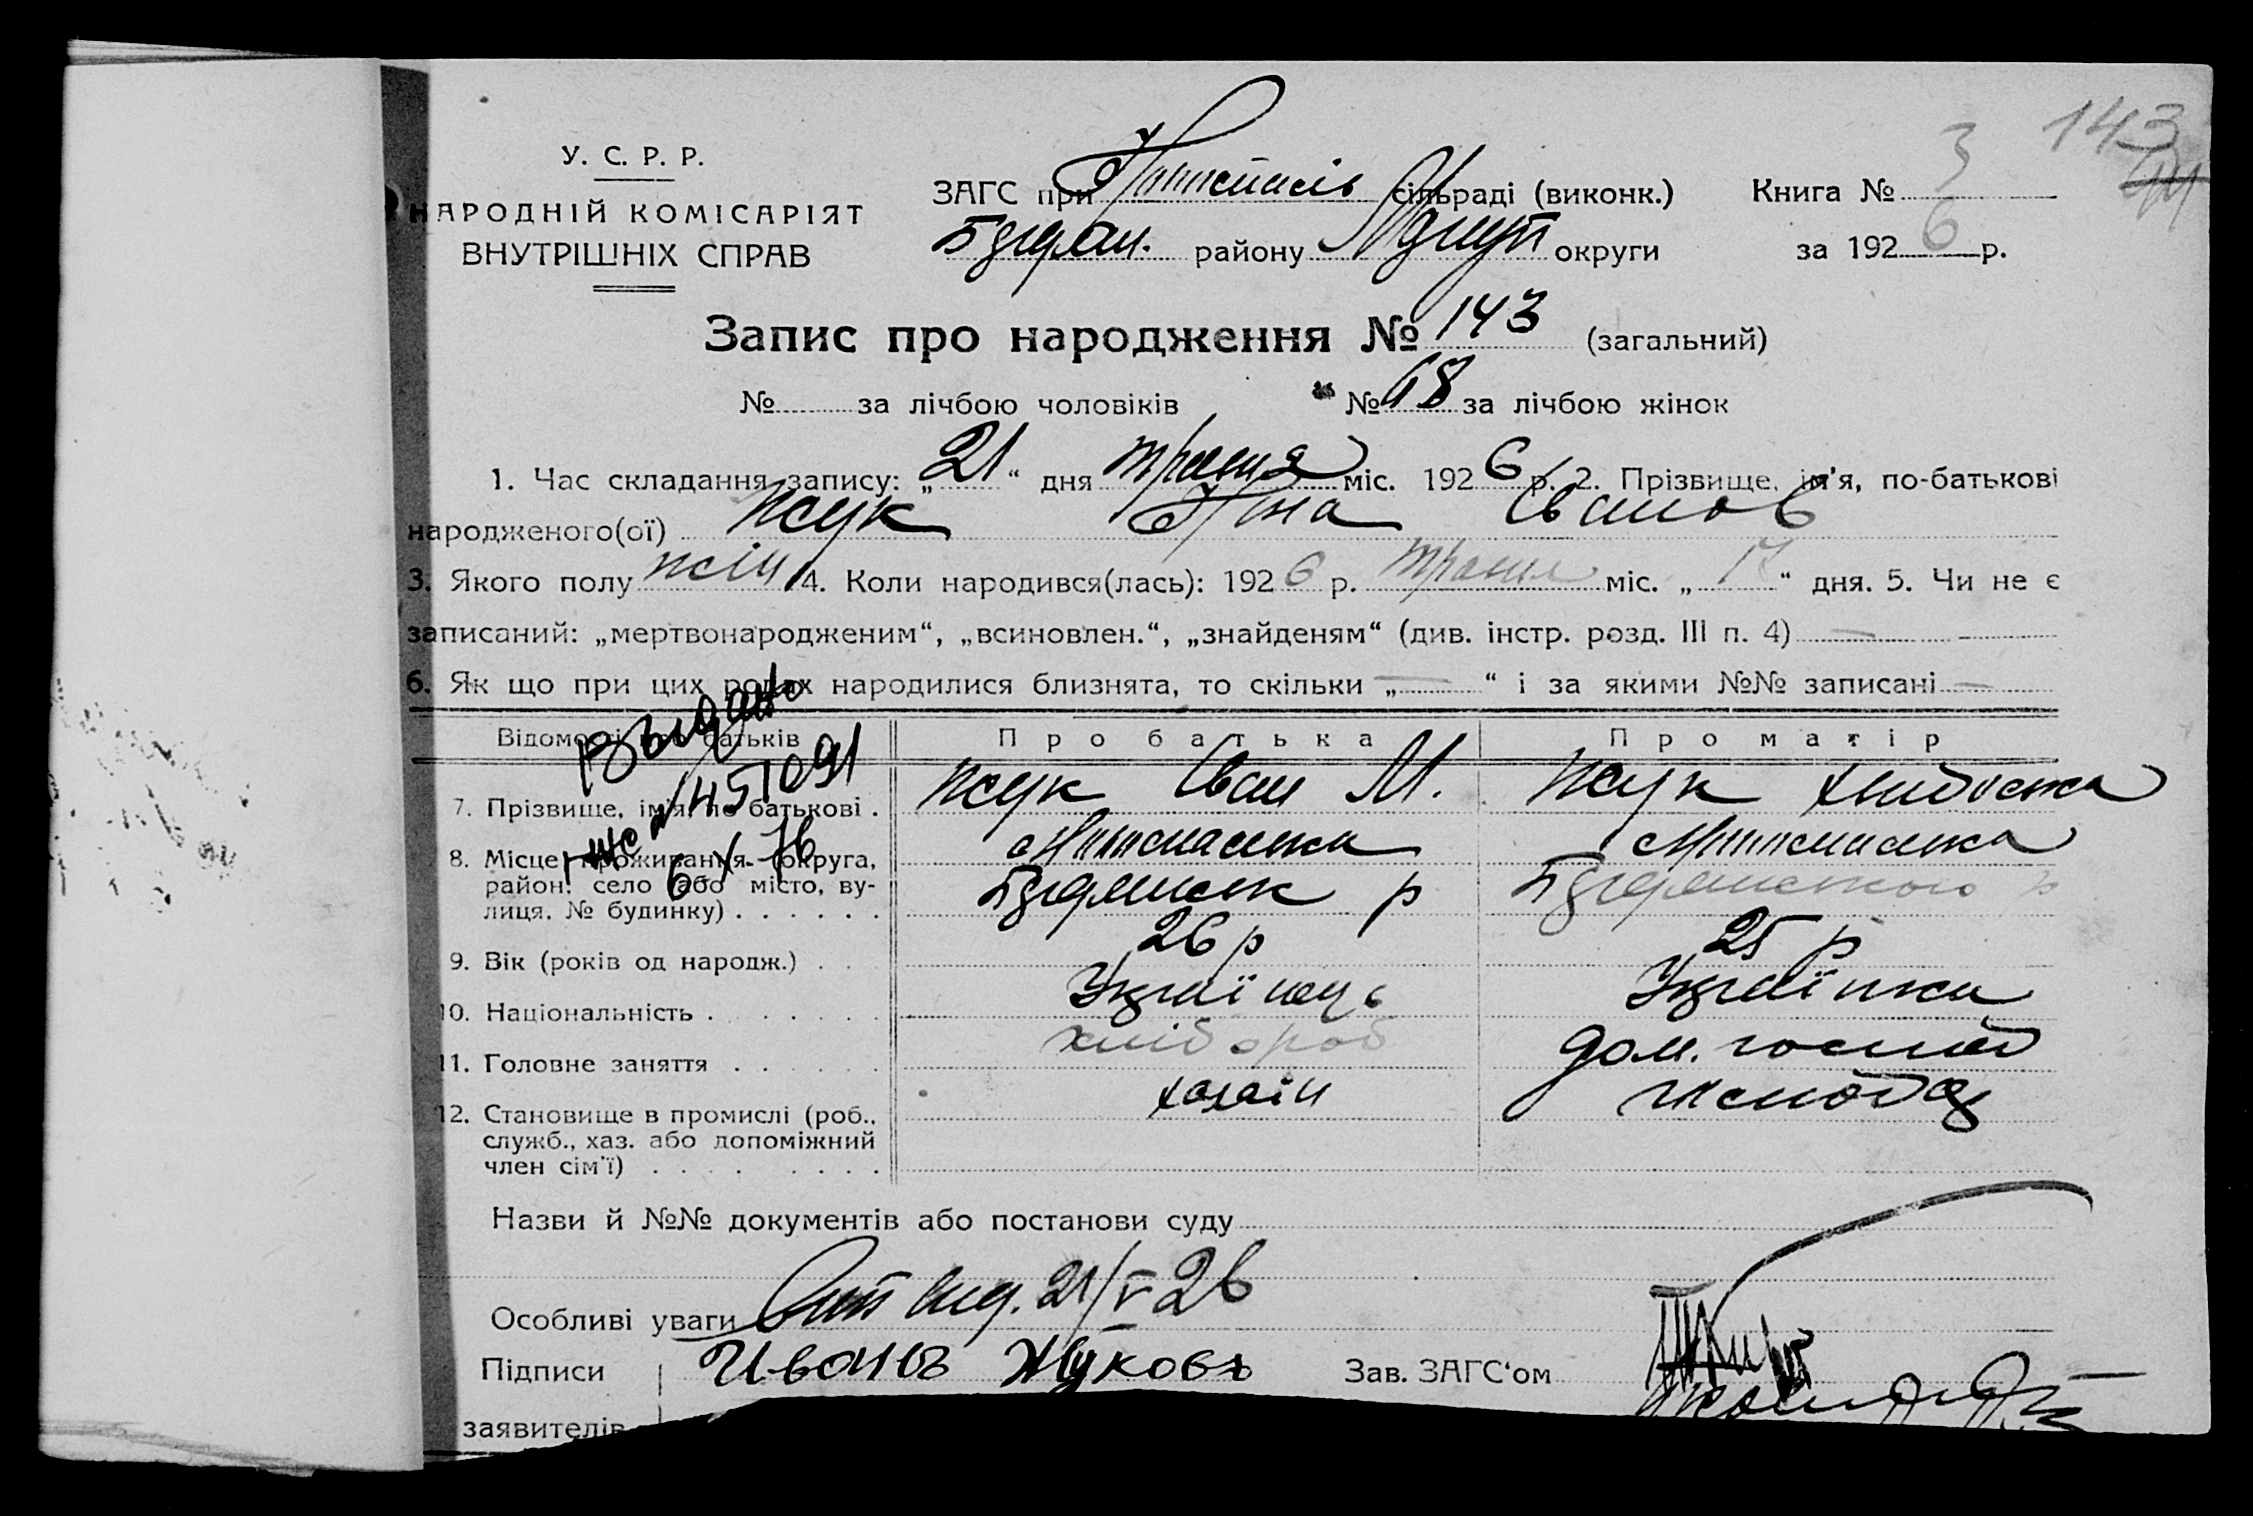 143
У. С. Р. Р.
НАРОДНІЙ КОМІСАРІЯТ
ВНУТРІШНІХ СПРАВ
ЗАГС при сільраді (виконк.) Книга № 3
району округи за 1926 р.
Запис про народження № 143 (загальний)
№ за лічбою чоловіків № 68 за лічбою жінок
1. Час складання запису: „21“ дня травня міс. 1926 р. 2. Прізвище, ім'я, по-батькові
народженого(ої) Жук Іванов
3. Якого полу жін 4. Коли народився(лась): 1926 р. травня міс. „17“ дня. 5. Чи не є
записаний: „мертвонародженим“, „всиновлен.“, „знайденям“ (див. інстр. розд. III п. 4) —
6. Як що при цих родах народилися близнята, то скільки „—“ і за якими №№ записані —
Выдано
451091
6 X 76
Відомості про батьків Про батька Про матір
7. Прізвище, ім'я, по батькові . Жук Іван М. Жук
8. Місце проживання (округа,
район, село або місто, ву-
лиця, № будинку) . . . . . .
9. Вік (років од народж.) . . . 26 р 25 р
10. Національність . . . . . . Українець Українка
11. Головне заняття . . . . . . хлібороб дом. господ
12. Становище в промислі (роб.,
служб., хаз. або допоміжний
член сім'ї) . . . . . . . . . хазаін
Назви й №№ документів або постанови суду
Особливі уваги вид. 21/V 26
Підписи Иванъ Жуковъ Зав. ЗАГС‘ом
заявителів